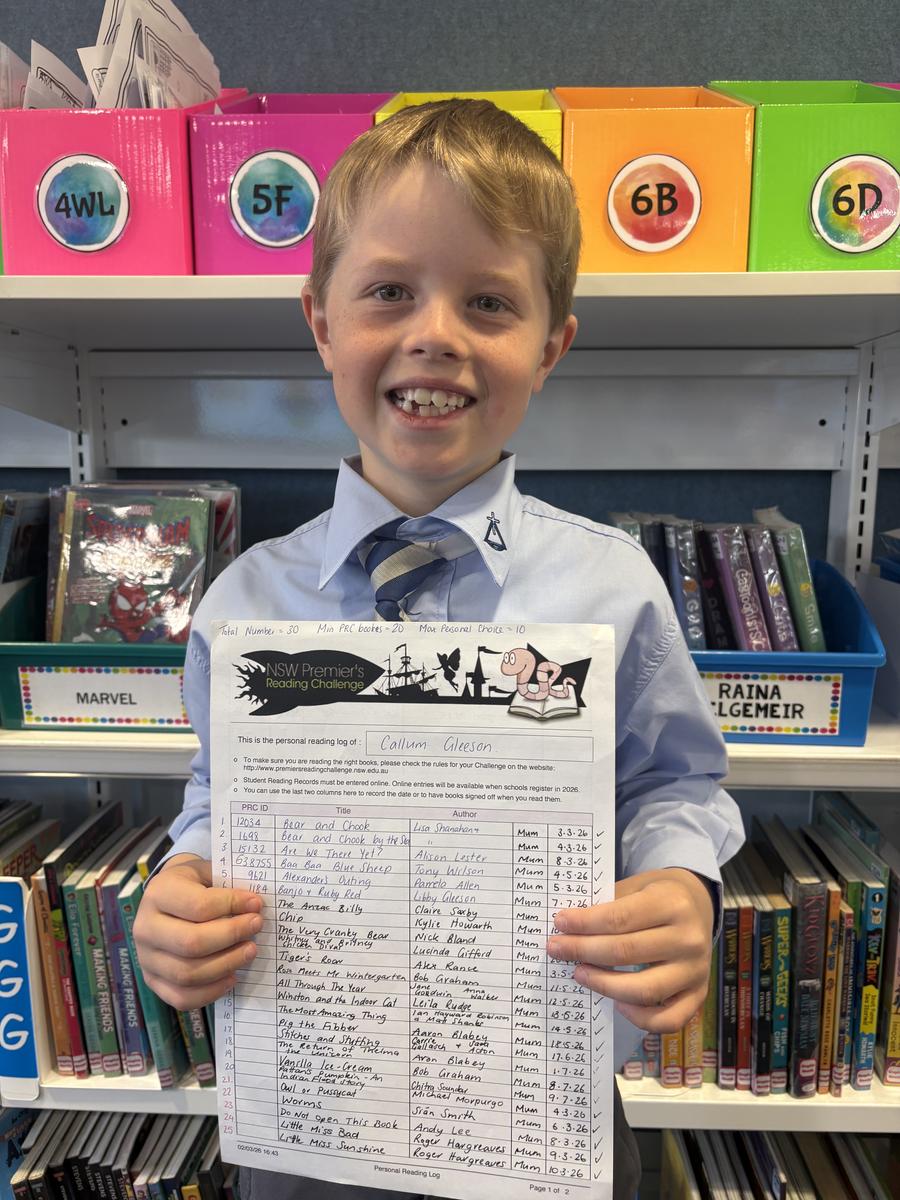 4WL
5F
6B
6D
SPIDER-MAN
MARVEL
RAINA
ELGEMEIR
MAKING FRIENDS
MAKING FRIENDS
G
G
G
Total Number = 30 Min PRC bookes = 20 Max Personal Choice = 10
NSW Premier's
Reading Challenge
This is the personal reading log of : Callum Gleeson
To make sure you are reading the right books, please check the rules for your Challenge on the website:
http://www.premiersreadingchallenge.nsw.edu.au
Student Reading Records must be entered online. Online entries will be available when schools register in 2026.
You can use the last two columns here to record the date or to have books signed off when you read them.
PRC ID Title Author
1. 12034 Bear and Chook Lisa Shanahan + Mum 3.3.26 ✓
2. 1698 Bear and Chook by the Sea " Mum 4.3.26 ✓
3. 15132 Are We There Yet? Alison Lester Mum 8.3.26 ✓
4. 638755 Baa Baa Blue Sheep Tony Wilson Mum 4.5.26 ✓
5. 9621 Alexander's Outing Pamela Allen Mum 5.3.26 ✓
1184 Banjo + Ruby Red Libby Gleeson Mum 7.7.26 ✓
The Anzac Billy Claire Saxby Mum
Chip Kylie Howarth Mum
The Very Cranky Bear Nick Bland Mum
Whitney and Britney Chicken Divas Lucinda Gifford Mum
Tiger's Roar Alex Rance Mum
Rosa Meets Mr Wintergarten Bob Graham Mum 11.5.26 ✓
All Through The Year Jane Godwin Anna Walker Mum 12.5.26 ✓
15 Winston and the Indoor Cat Leila Rudge Mum 13.5.26 ✓
16 The Most Amazing Thing Ian Hayward Robinson + Matt Shanks Mum 14.5.26 ✓
17. Pig the Fibber Aaron Blabey Mum 18.5.26 ✓
18. Stitches and Stuffing Carrie Gallasch + Sara Acton Mum 17.6.26 ✓
19. The Return of Thelma the Unicorn Aron Blabey Mum 1.7.26 ✓
20 Vanilla Ice-Cream Bob Graham Mum 8.7.26 ✓
21. Pattan's Pumpkin - An Indian Flood Story Chitra Soundar Mum 9.7.26 ✓
22 Owl or Pussycat Michael Morpurgo Mum 4.3.26 ✓
23 Worms Siân Smith Mum 6.3.26 ✓
24 Do Not Open This Book Andy Lee Mum 8.3.26 ✓
25 Little Miss Bad Roger Hargreaves Mum 9.3.26 ✓
Little Miss Sunshine Roger Hargreaves Mum 10.3.26 ✓
02/03/26 16:43
Personal Reading Log
Page 1 of 2